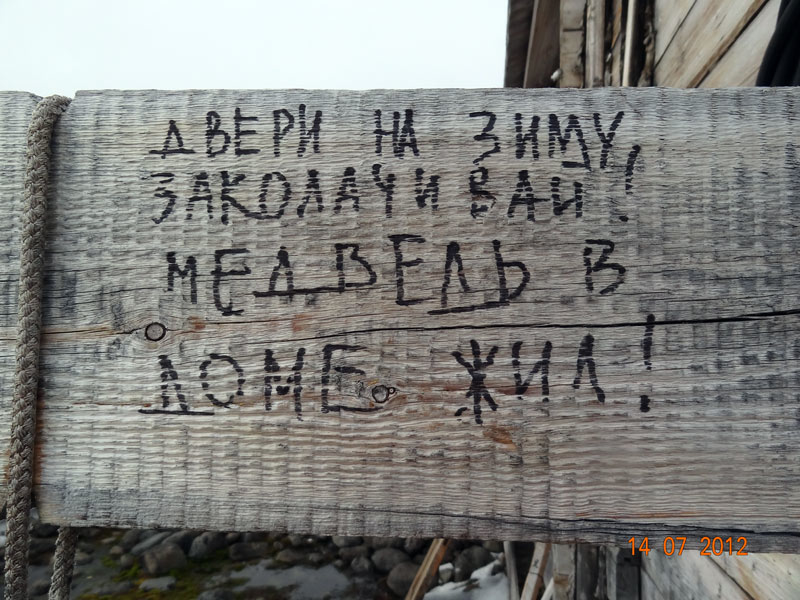 ДВЕРИ НА ЗИМУ
ЗАКОЛАЧИВАЙ!
МЕДВЕДЬ В
ДОМЕ ЖИЛ!
14 07 2012